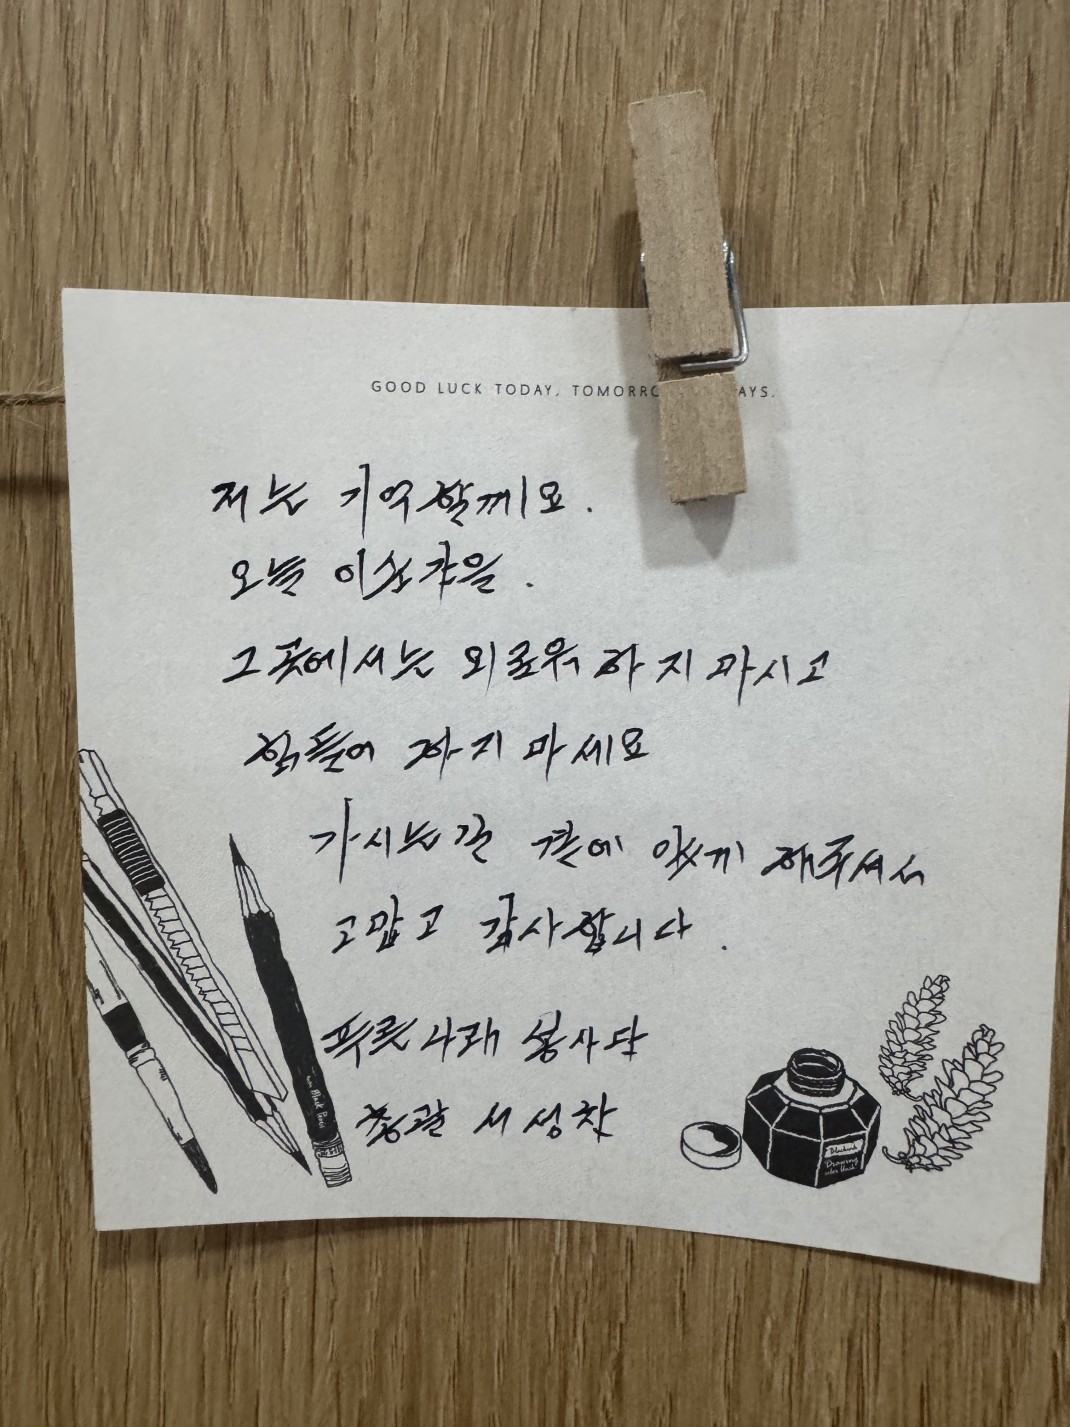 GOOD LUCK TODAY, TOMORRO AYS.
저는 기억할께요.
오늘 이순간을.
그곳에서는 외로워 하지 마시고
힘들어 하지 마세요
가시는길 곁에 있게 해주셔서
고맙고 감사합니다.
푸른나래 봉사단
총괄 서성찬
Black Pencil
Drawing